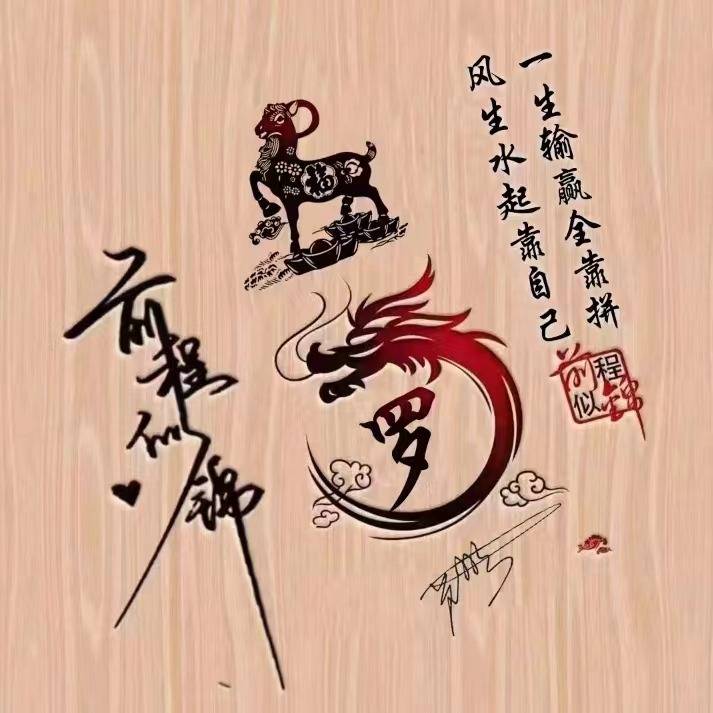 一生输赢全靠拼
风生水起靠自己
前程似锦
福
前程似锦
罗